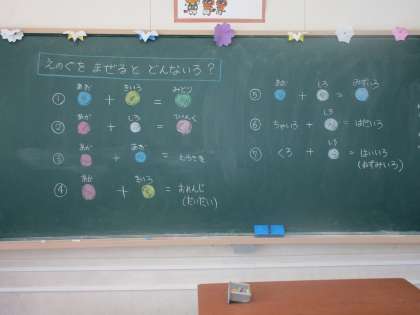 えのぐを まぜると どんないろ?
① あお + きいろ = みどり
② あか + しろ = ぴんく
③ あか + あお = むらさき
④ あか + きいろ = おれんじ
(だいだい)
⑤ あお + しろ = みずいろ
⑥ ちゃいろ + しろ = はだいろ
⑦ くろ + しろ = はいいろ
(ねずみいろ)